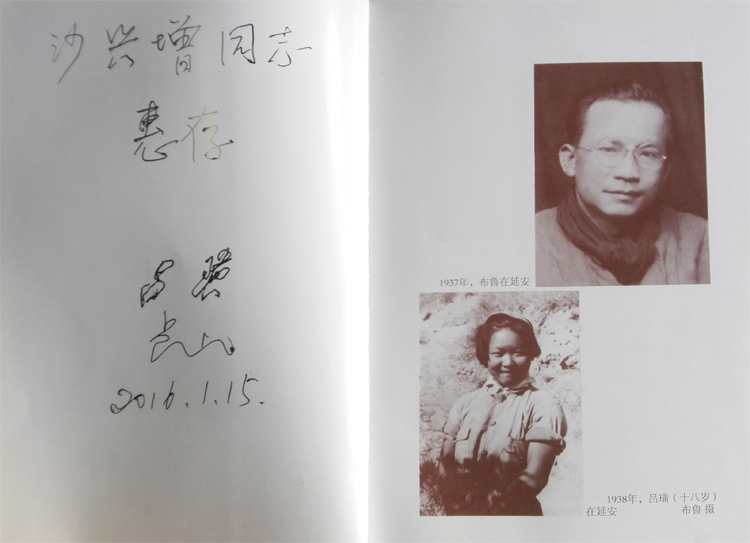 沙兴增同志
惠存
吕璜
2016.1.15.
1937年，布鲁在延安
1938年，吕璜（十八岁）
在延安 布鲁 摄